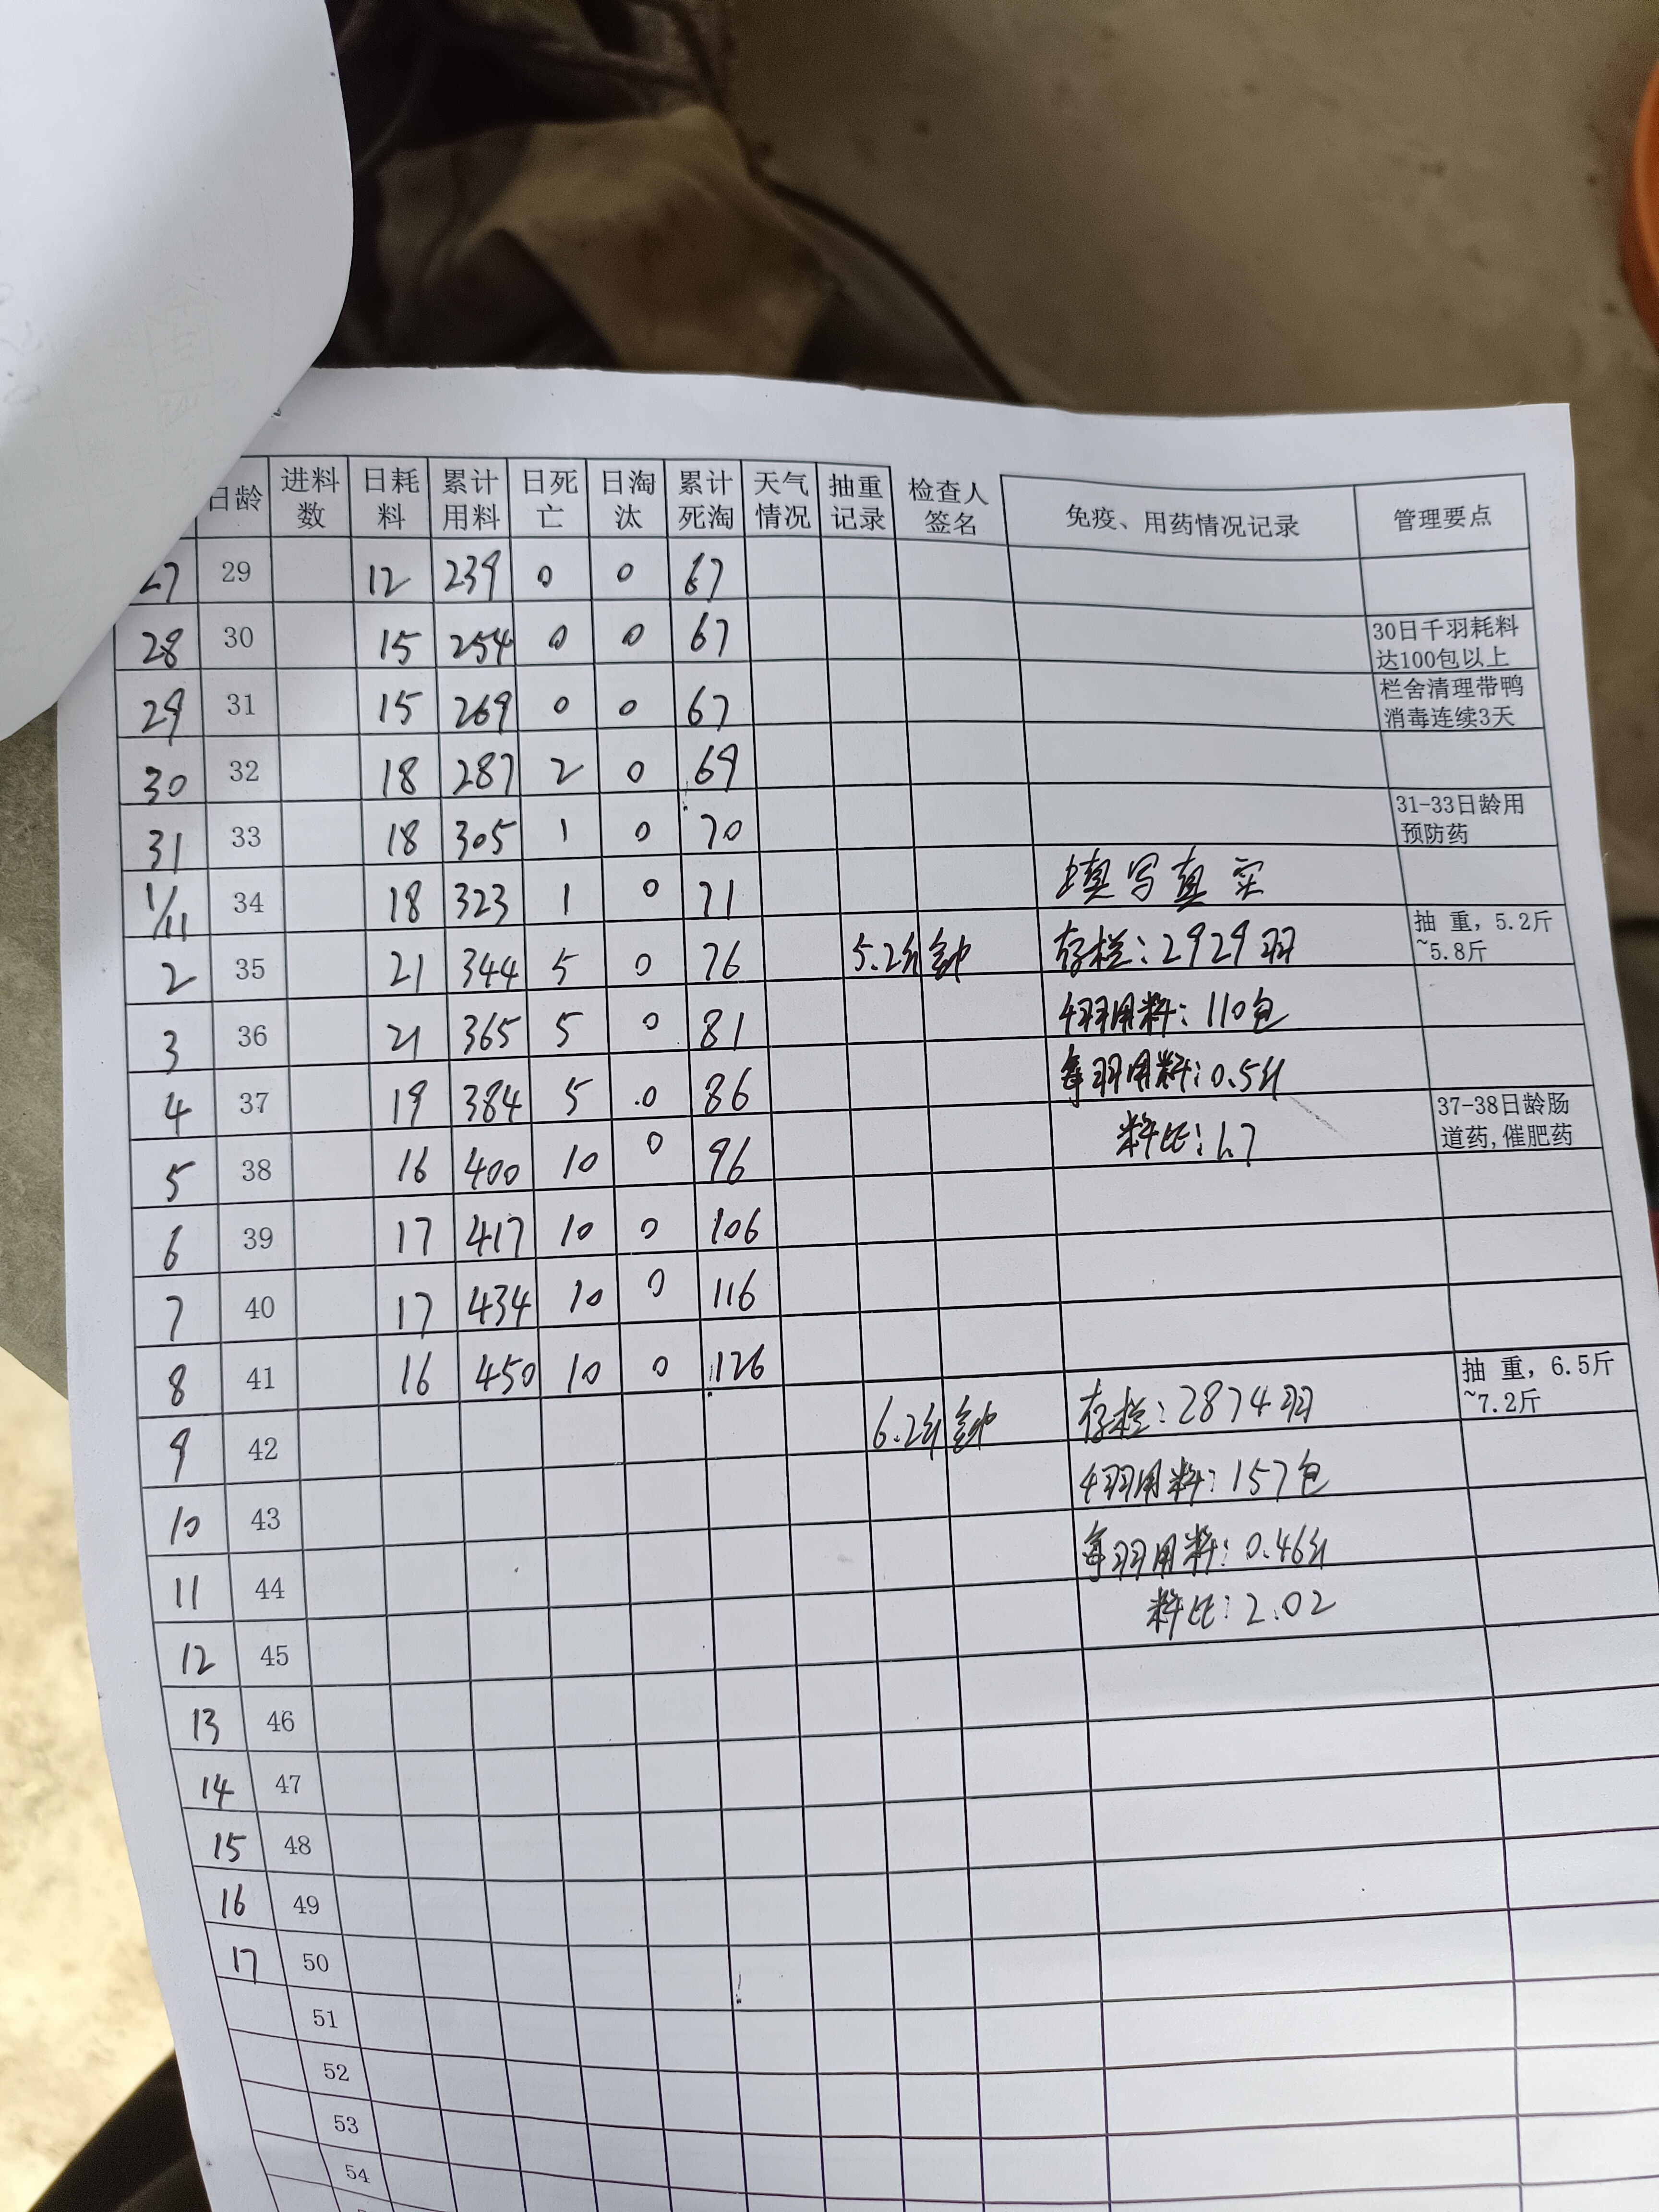 日龄 进料数 日耗料 累计用料 日死亡 日淘汰 累计死淘 天气情况 抽重记录 检查人签名 免疫、用药情况记录 管理要点
27 29 12 239 0 0 67
28 30 15 254 0 0 67 30日千羽耗料达100包以上
29 31 15 269 0 0 67 栏舍清理带鸭消毒连续3天
30 32 18 287 2 0 69
31 33 18 305 1 0 70 31-33日龄用预防药
1/11 34 18 323 1 0 71 填写真实
2 35 21 344 5 0 76 5.2斤 存栏:2929羽 抽 重,5.2斤~5.8斤
3 36 21 365 5 0 81 千羽用料:110包
4 37 19 384 5 0 86 每羽用料:0.5斤 37-38日龄肠道药,催肥药
5 38 16 400 10 0 96 料比:1.7
6 39 17 417 10 0 106
7 40 17 434 10 0 116
8 41 16 450 10 0 126 抽 重,6.5斤~7.2斤
9 42 6.2斤 存栏:2874羽
10 43 千羽用料:157包
11 44 每羽用料:0.46斤
12 45 料比:2.02
13 46
14 47
15 48
16 49
17 50
51
52
53
54